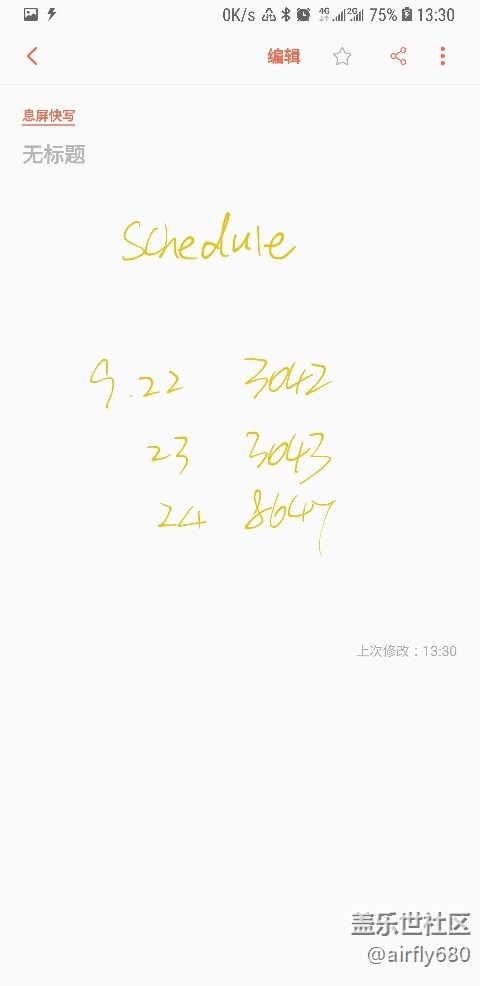 0K/s 4G 2G 75% 13:30
编辑
息屏快写
无标题
Schedule
9.22 3042
23 3043
24 8647
上次修改：13:30
盖乐世社区
@airfly680